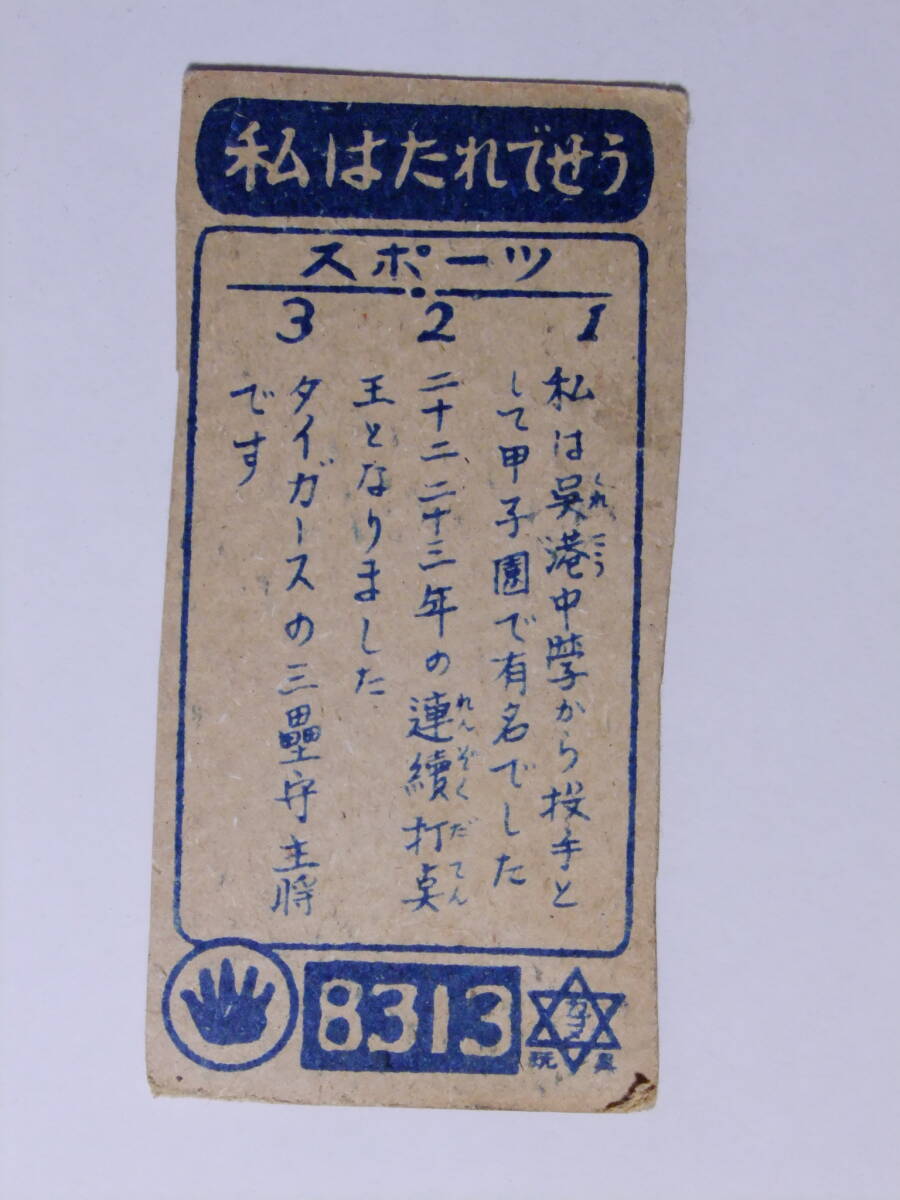 私はたれでせう
スポーツ
1
私は呉港中学から投手と
して甲子園で有名でした
くれこう
2
二十二二十三年の連続打点
王となりました
れんぞくだてん
3
タイガースの三壘守主将
です
8313
玩具